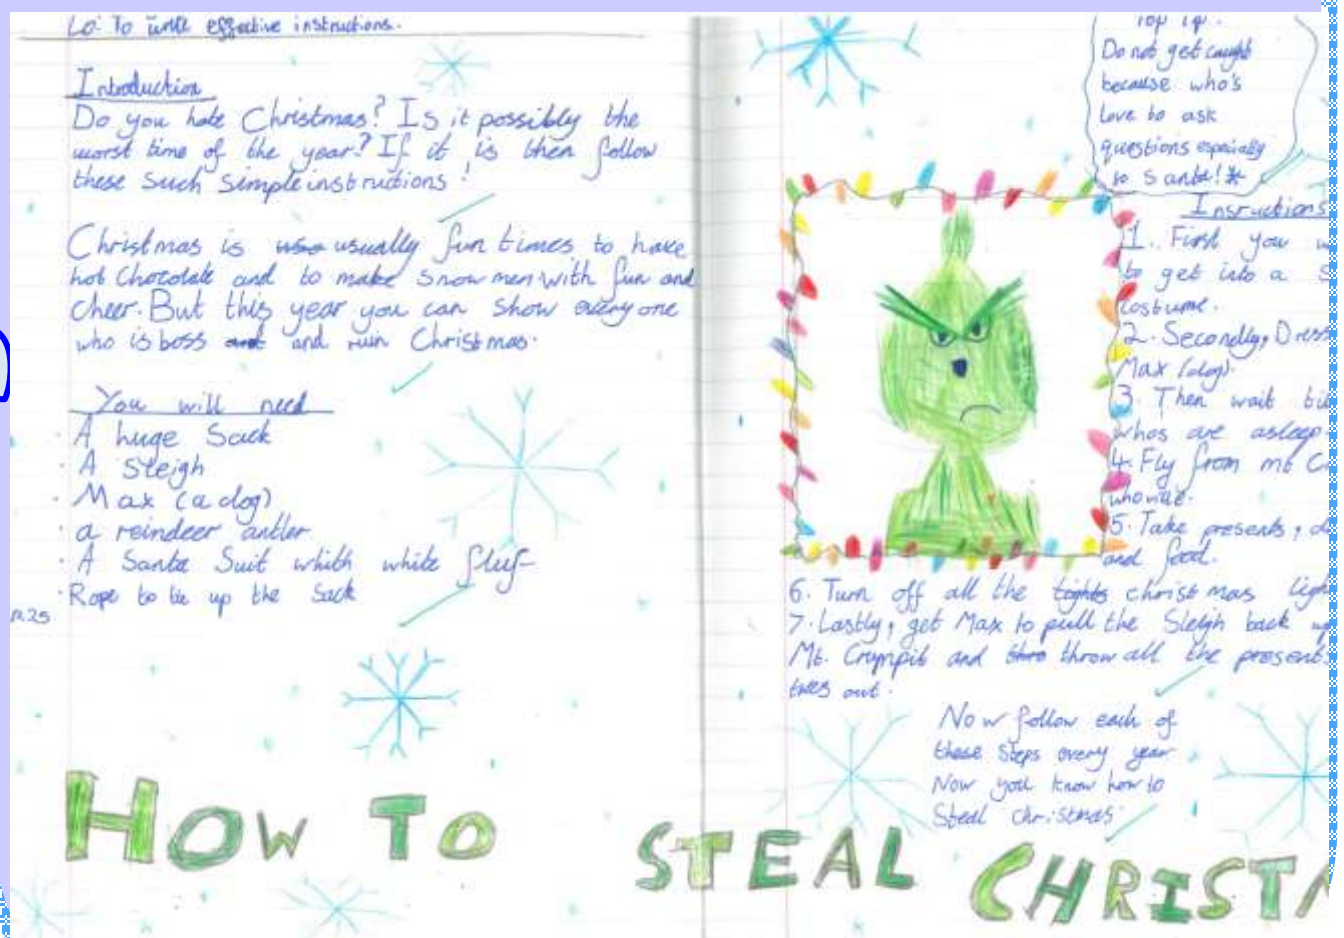 Lo: To write effective instructions.
Introduction
Do you hate Christmas? Is it possibly the
worst time of the year? If it is then follow
these such simple instructions!
Christmas is usually fun times to have
hot chocolate and to make snow men with fun and
cheer. But this year you can show every one
who is boss and ruin Christmas.
You will need
· A huge Sack
· A Sleigh
· Max (a dog)
· a reindeer antler
· A Santa Suit whith white fluf
· Rope to tie up the Sack
HOW TO STEAL CHRIST
Top tip.
Do not get caught
because who's
love to ask
questions especially
to Santa!*
Insructions
1. First you
to get into a
costume.
2. Secondly, Dress
Max (dog).
3. Then wait
whos are asleep
4. Fly from mt
5. Take presents,
and food.
6. Turn off all the christmas
7. Lastly, get Max to pull the Sleigh back
Mt. Crumpit and throw all the present
trees out.
Now follow each of
these steps every year
Now you know how to
Steal christmas.